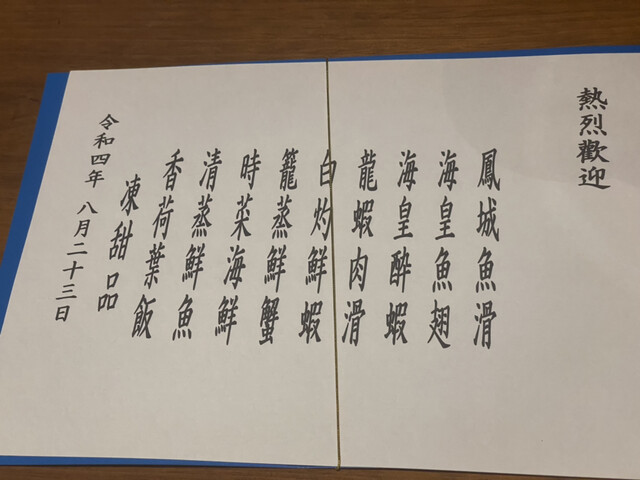 熱烈歡迎
鳳城魚滑
海皇魚翅
海皇醉蝦
龍蝦肉滑
白灼鮮蝦
籠蒸鮮蟹
時菜海鮮
清蒸鮮魚
香荷葉飯
凍甜品
令和四年 八月二十三日